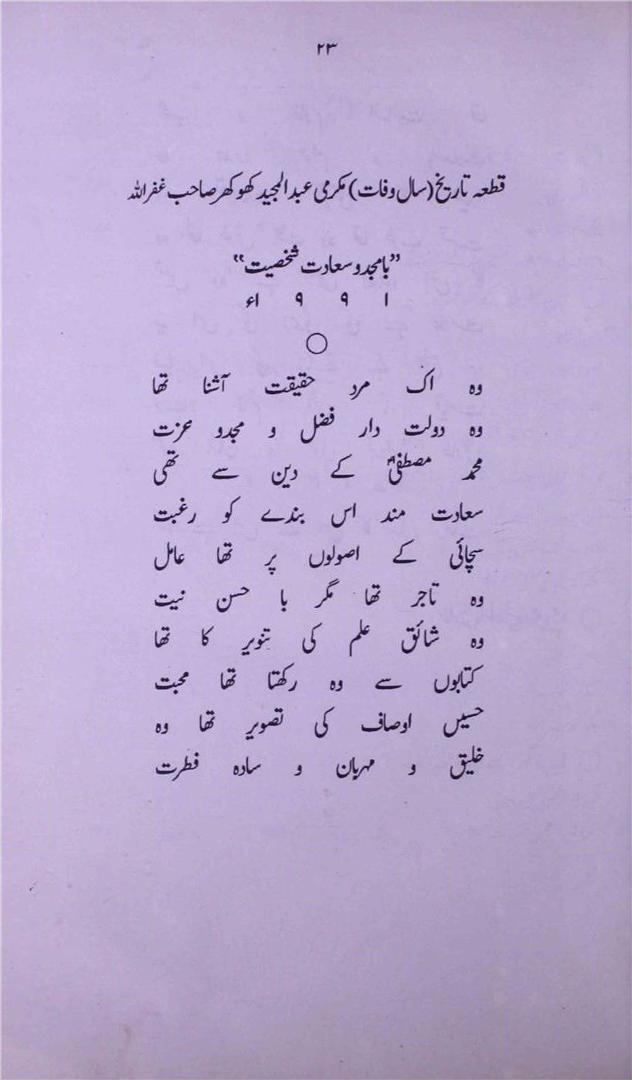 ۲۳
قطعہ تاریخ (سال وفات) مکرمی عبدالمجید کھوکھر صاحب غفر اللہ
”بامجد و سعادت شخصیت“
۱ ۹ ۹ ۱ء
وہ اک مرد حقیقت آشنا تھا
وہ دولت دار فضل و مجد و عزت
محمد مصطفیٰؐ کے دین سے تھی
سعادت مند اس بندے کو رغبت
سچائی کے اصولوں پر تھا عامل
وہ تاجر تھا مگر با حسن نیت
وہ شائق علم کی تنویر کا تھا
کتابوں سے وہ رکھتا تھا محبت
حسیں اوصاف کی تصویر تھا وہ
خلیق و مہربان و سادہ فطرت